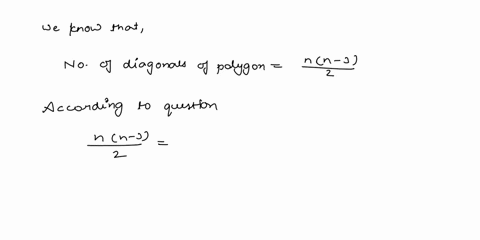 we know that,
No. of diagonals of polygon = n(n-3)/2
According to question
n(n-3)/2 =